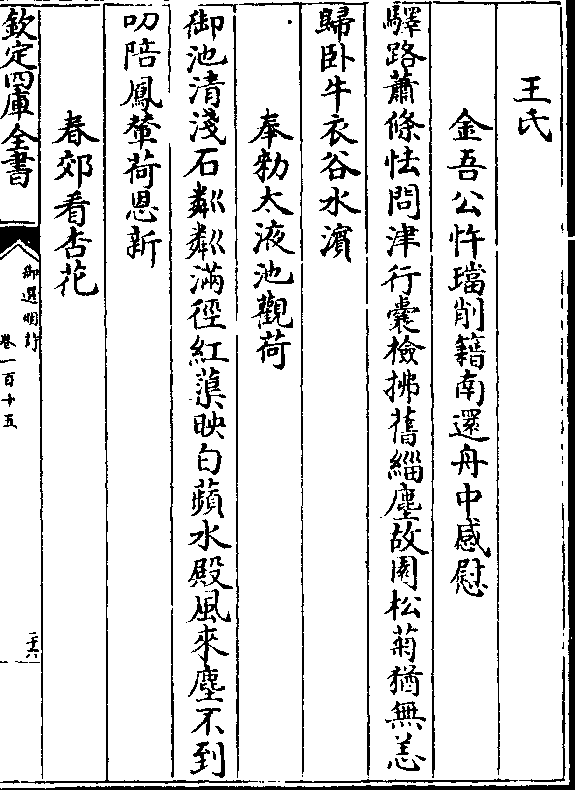 王氏
金吾公忤璫削籍南還舟中感慰
驛路蕭條怯問津行囊檢拂舊緇塵故園松菊猶無恙
歸卧牛衣谷水濱
奉勅太液池觀荷
御池清淺石粼粼滿徑紅蕖映白蘋水殿風來塵不到
叨陪鳳輦荷恩新
春郊看杏花
欽定四庫全書
御選明詩
卷一百十五
二十六